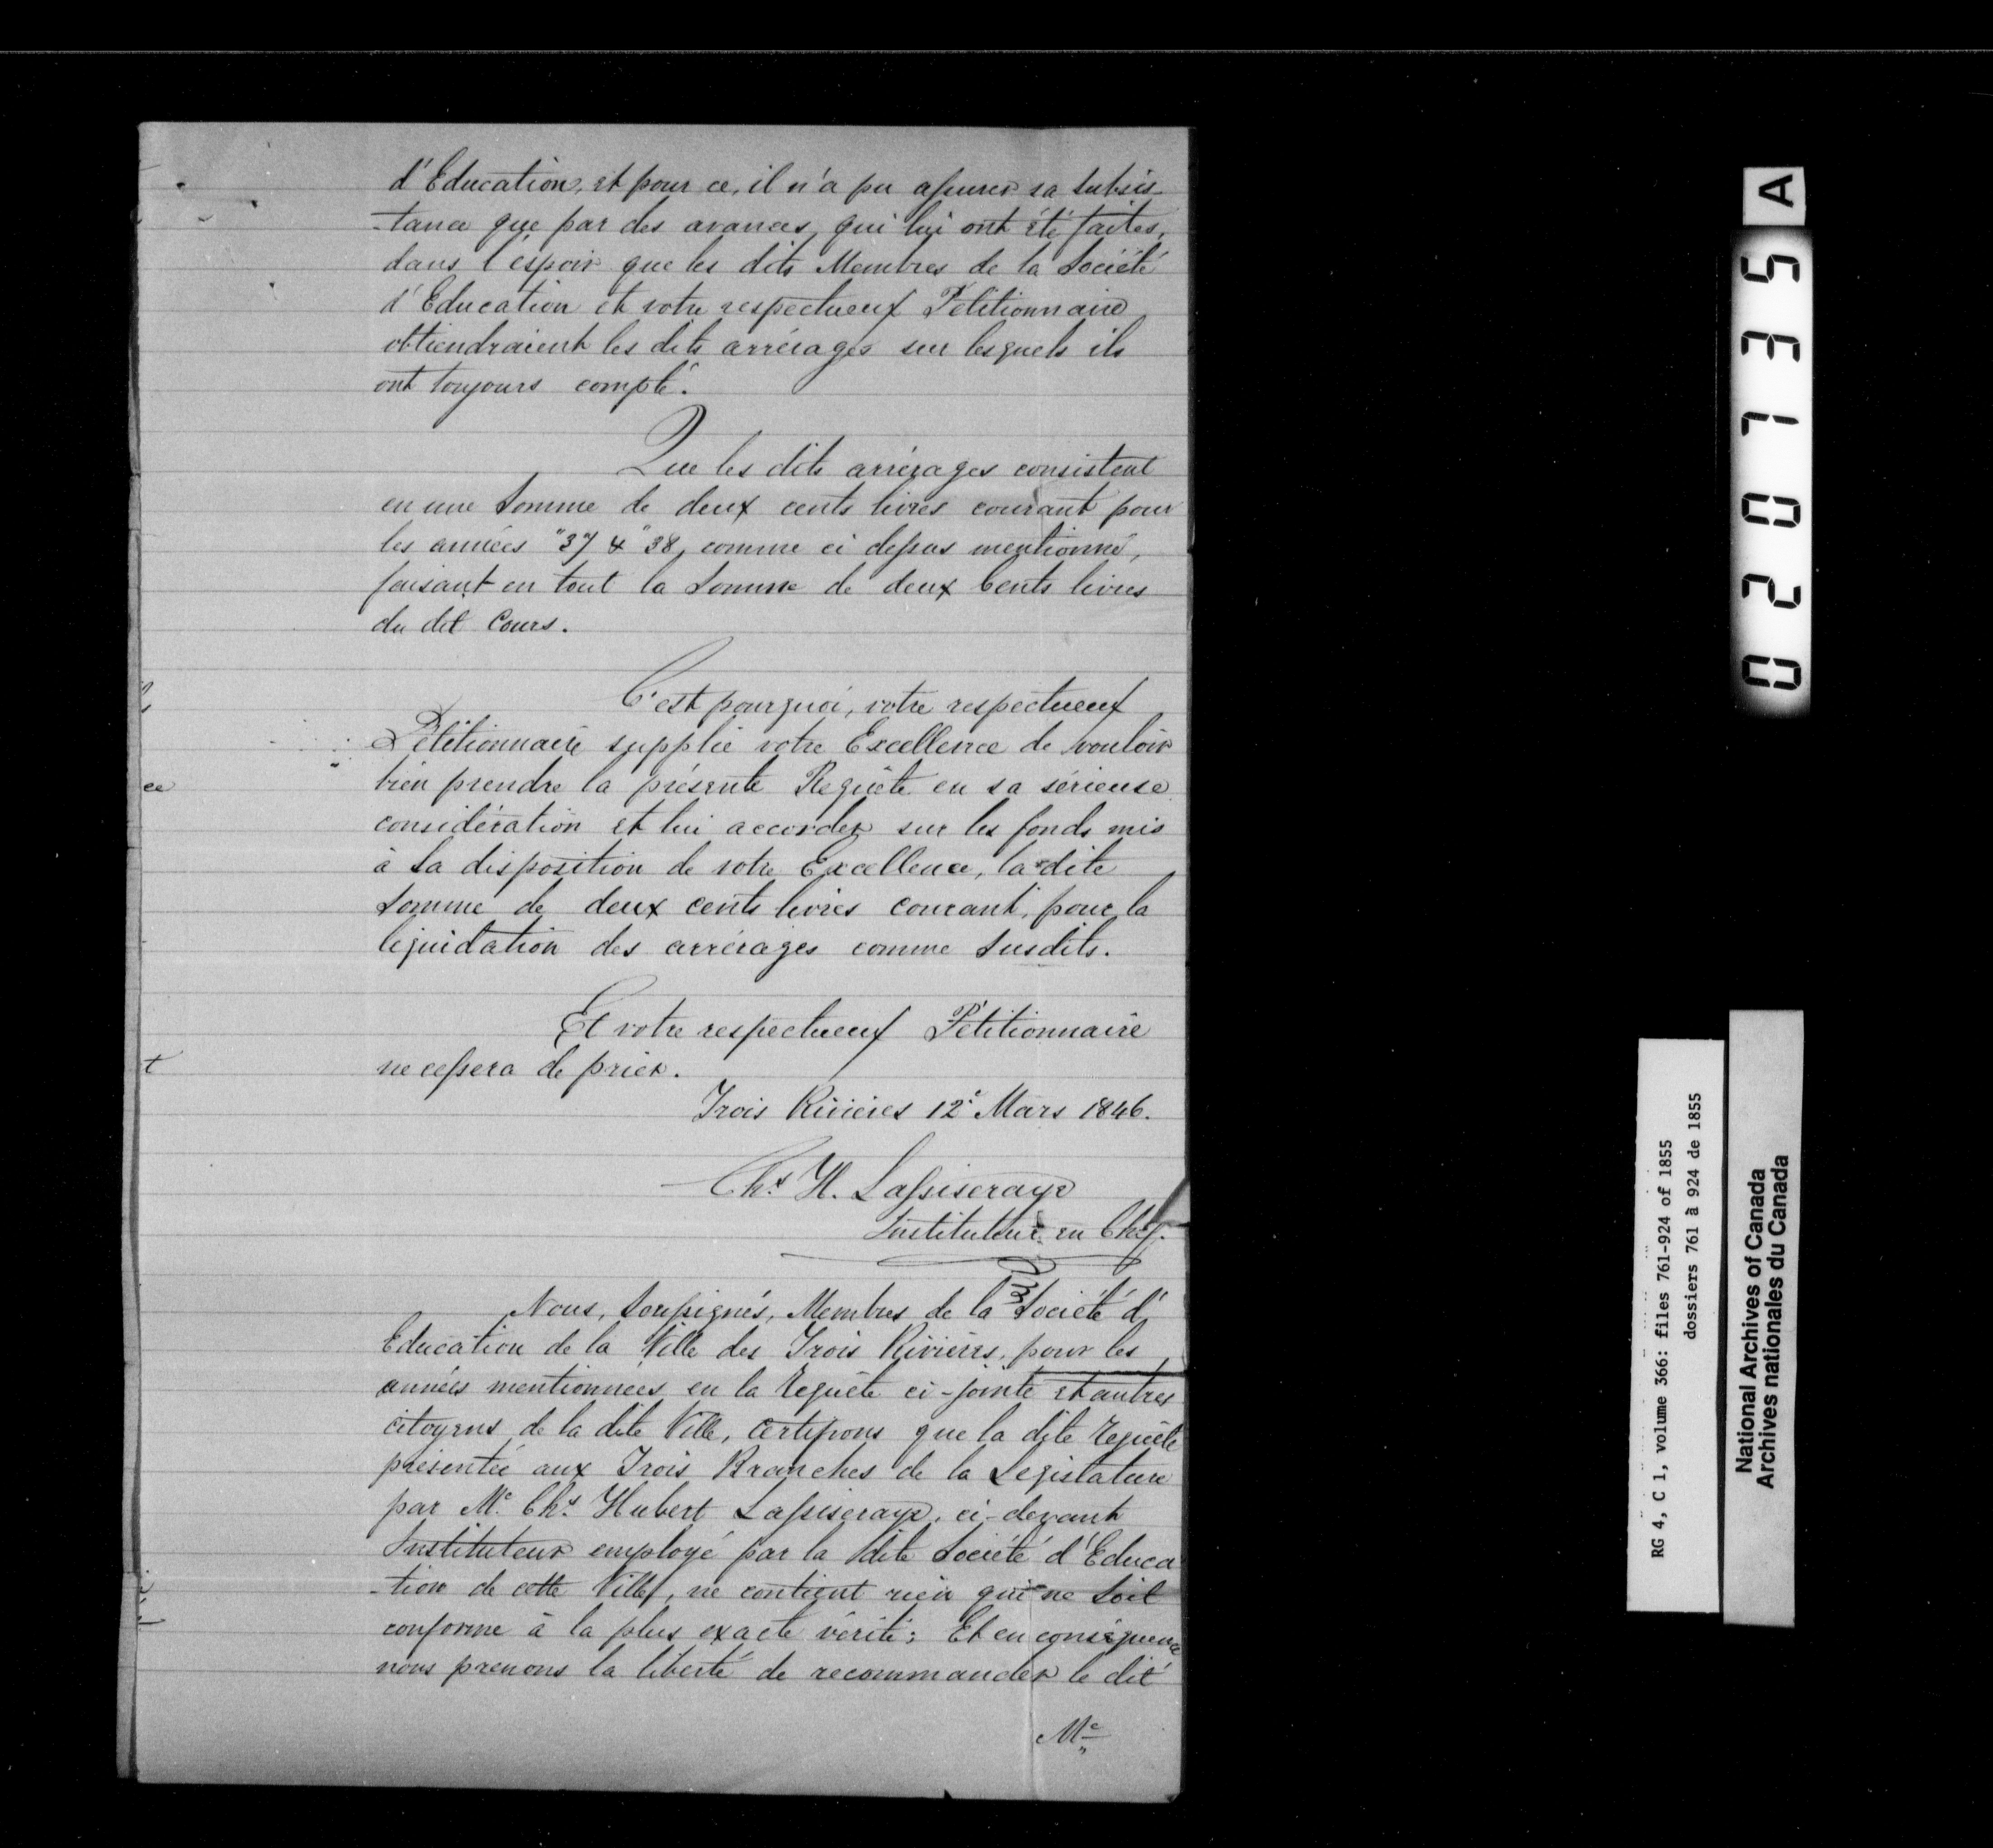 d'Education, et pour ce, il n'a pu assurer sa subsis-
-tance que par des avances, qui lui ont été faites,
dans l'éspoir que les dits Membres de la Société
d'Education et votre respectueux Pétitionnaire
obtiendraient les dits arrérages sur lesquels ils
ont toujours compté.
Que les dits arrérages consistent
en une Somme de deux cents livres courant pour
les années "37 & "38, comme ci dessus mentionné,
faisant en tout la Somme de deux Cents livres
du dit Cours.
C'est pourquoi, votre respectueux
Pétitionnaire supplie votre Excellence de vouloir
bien prendre la présente Requête en sa sérieuse
considération et lui accorder sur les fonds mis
à la disposition de votre Excellence, la dite
Somme de deux cents livres courant, pour la
liquidation des arrérages comme Susdits.
Et votre respectueux Pétitionnaire
ne cessera de prier.
Trois Rivières 12e Mars 1846.
Chs H. Lassiseraye
Instituteur en Chef.
Nous, Soussignés, Membres de la Société d'
Education de la Ville des Trois Rivières, pour les
années mentionnées en la Requête ci-jointe et autres
citoyens de la dite Ville, Certifions que la dite Requête
présentée aux Trois Branches de la Législature
par Mr Chs Hubert Lassiseraye, ci-devant
Instituteur employé par la dite Société d'Educa
-tion de cette Ville, ne contient rien qui ne Soit
conforme à la plus exacte vérité; Et en conséquence
nous prenons la liberté de recommander le dit
Mr
ce
t
020135
A
RG 4, C 1, volume 366: files 761-924 of 1855
dossiers 761 à 924 de 1855
National Archives of Canada
Archives nationales du Canada